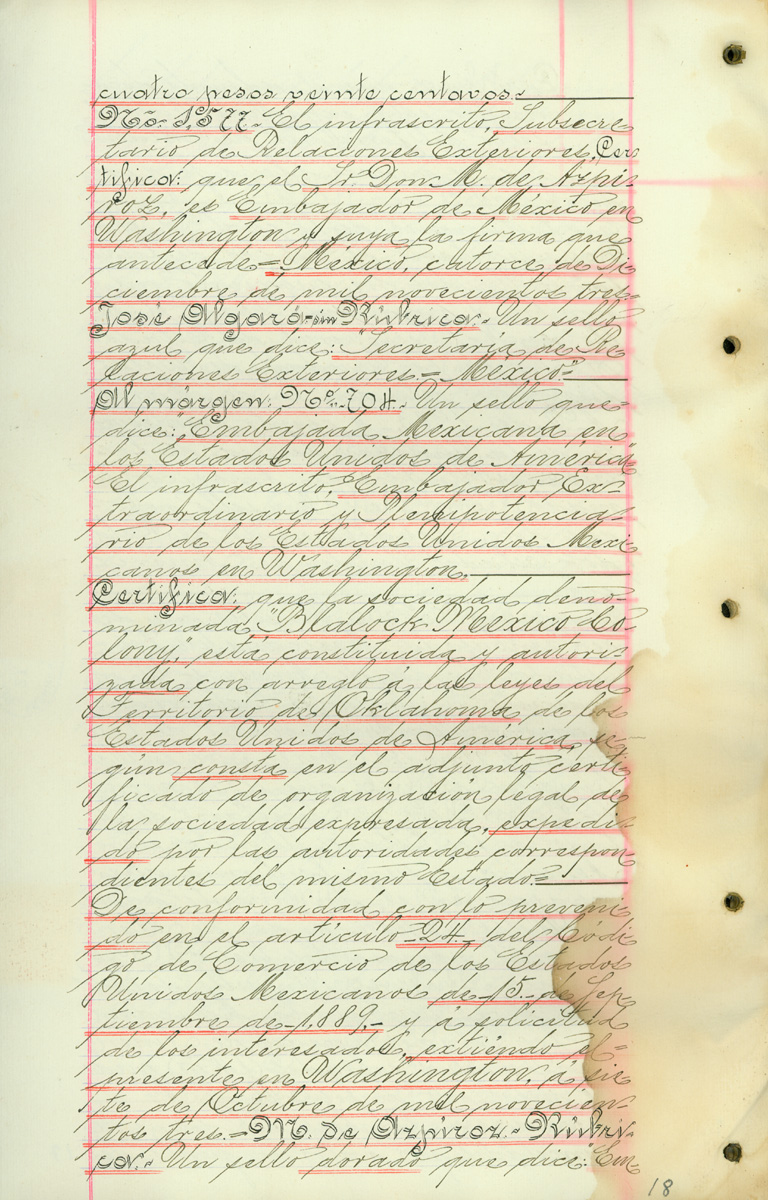 cuatro pesos veinte centavos.-
No. 1,577.- El infrascrito, Subsecre-
tario de Relaciones Exteriores, Cer
tifica: que el Sr. Don M. de Azpi-
roz, es Embajador de México en
Washington y suya la firma que
antecede.= México, catorce de Di
ciembre de mil novecientos tres.-
José Algara.- Rúbrica.- Un sello
azul que dice: "Secretaría de Re
laciones Exteriores.- México"
Al márgen: No. 704.- Un sello que-
dice: "Embajada Mexicana en
los Estados Unidos de America"
El infrascrito, Embajador Ex-
traordinario y Plenipotencia-
rio de los Estados Unidos Mexi
canos en Washington.
Certifica: que la sociedad deno-
minada "Blalock Mexico Co-
lony," está constituida y autori-
zada con arreglo á las leyes del
Territorio de Oklahoma de los
Estados Unidos de América, se-
gún consta en el adjunto certi
ficado de organización legal de
la sociedad expresada, expedi-
do por las autoridades correspon-
dientes del mismo Estado.=
De conformidad con lo preveni
do en el artículo -24- del Códi
go de Comercio de los Estados
Unidos Mexicanos de -15- de Sep
tiembre de -1,889,- y á solicitud
de los interesados, extiendo el=
presente en Washington, á sie
te de Octubre de mil novecien
tos tres.= M. de Azpiroz.- Rúbri-
ca.- Un sello dorado que dice: Em-
18